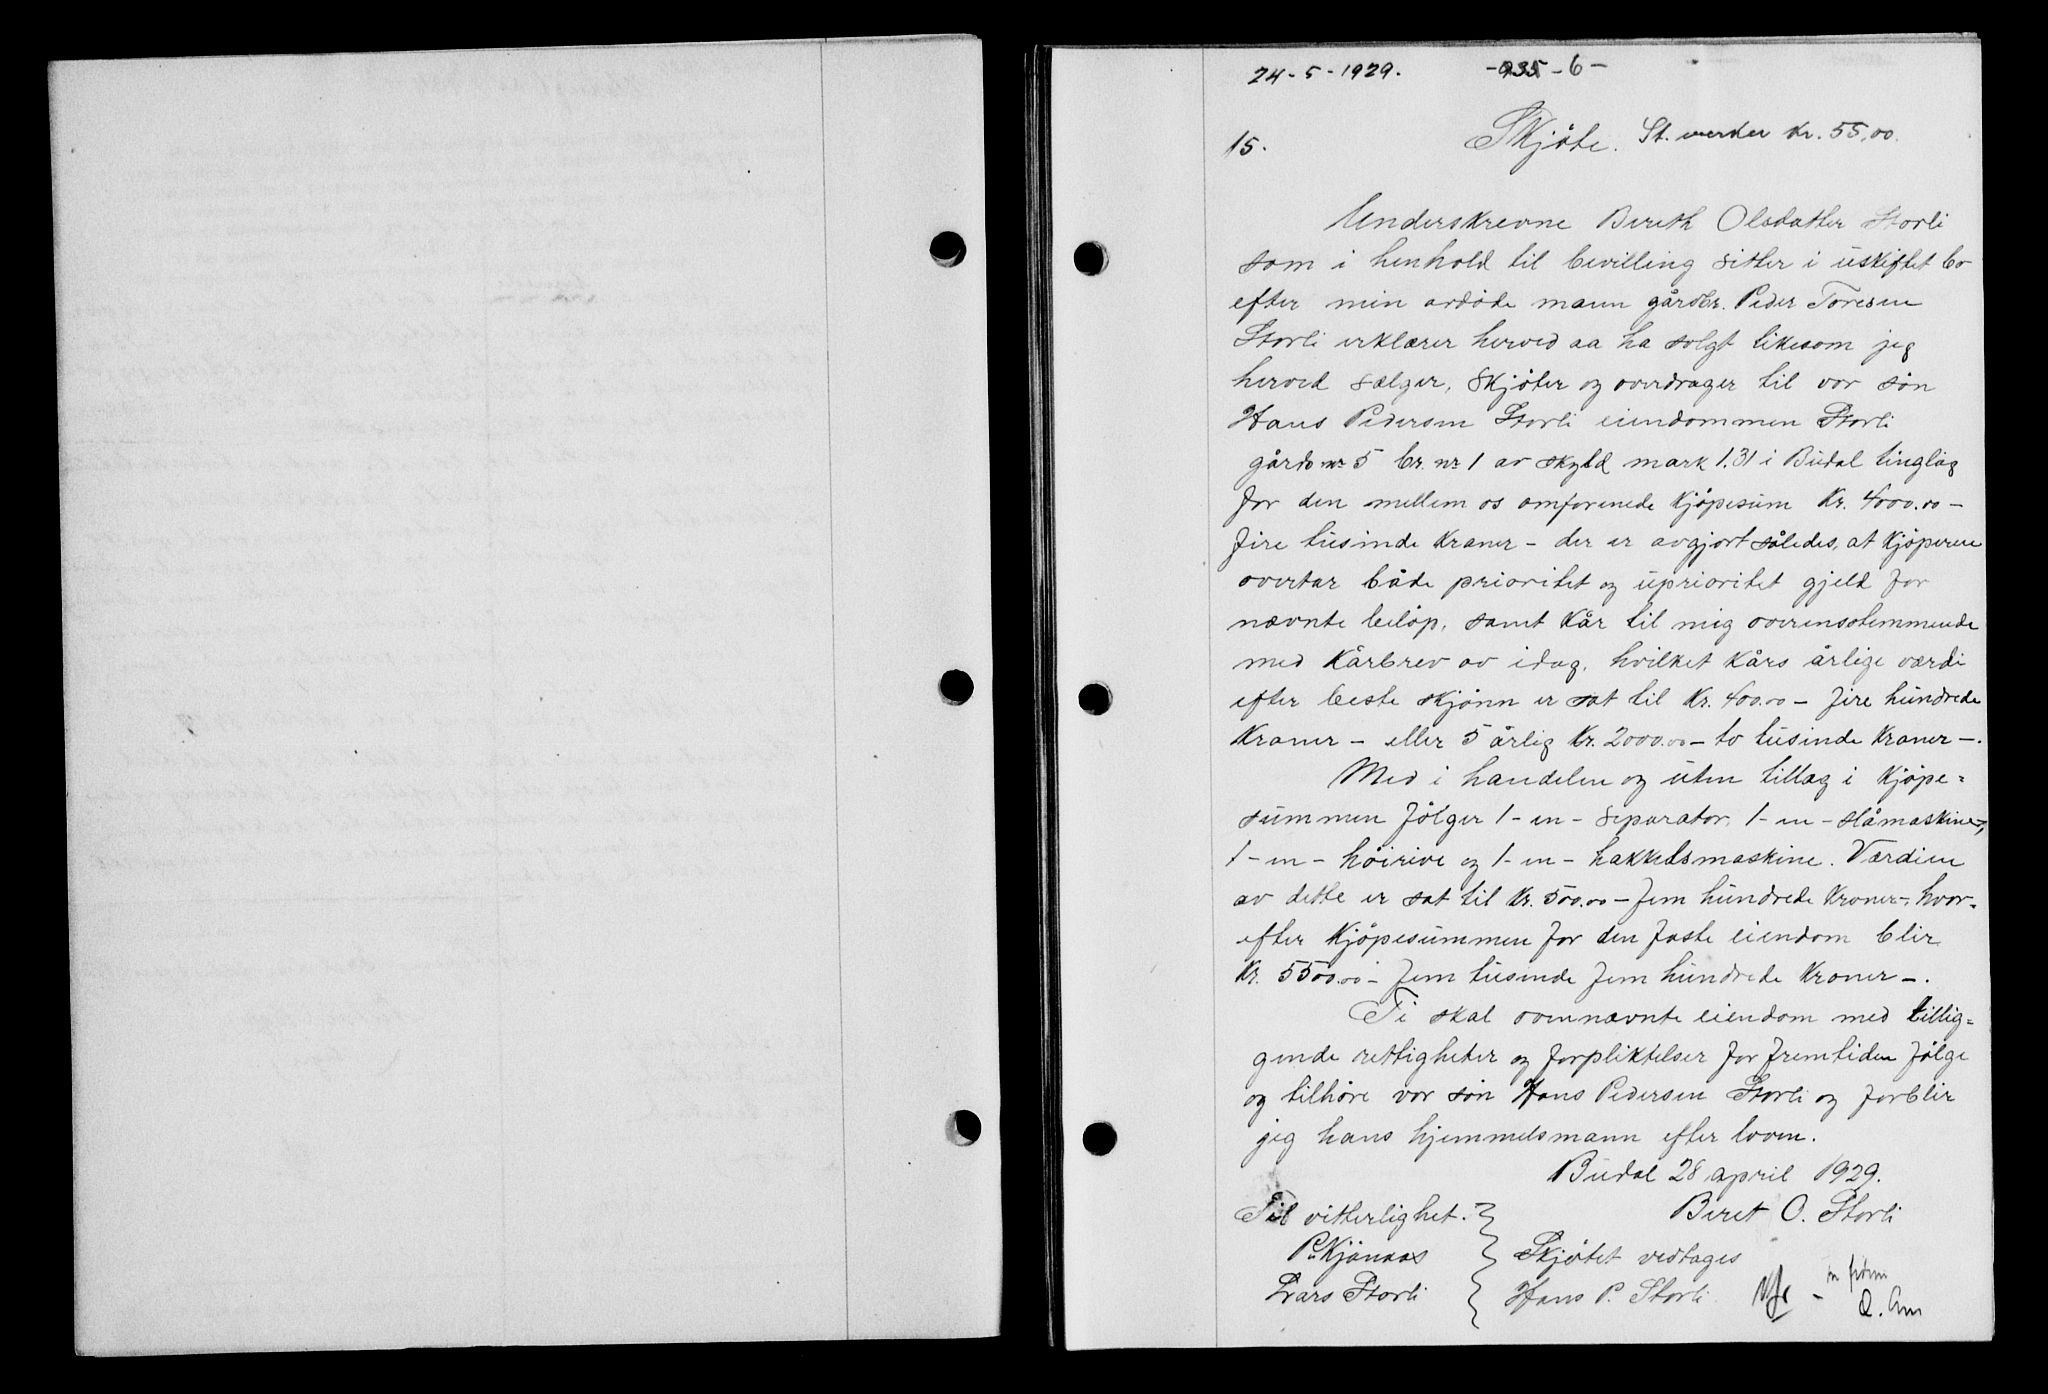 24-5-1929. -935-6-
15. Skjöte. St. merker kr. 55,00.
Underskrevne Bereth Olsdatter Storli
som i henhold til bevilling sitter i uskiftet bo
efter min avdöde mann gårdbr. Peder Toresen
Storli erklærer herved aa ha solgt likesom jeg
herved sælger, skjöter og overdrager til vor sön
Hans Pedersen Storli eiendommen Storli
gårds nr 5 br. nr 1 av skyld mark 1.31 i Budal tinglag
for den mellem os omforenede kjöpesum Kr. 4000.00 -
fire tusinde kroner - der er avgjort således, at kjöperen
overtar både prioritet og uprioritet gjeld for
nævnte belöp, samt kår til mig overensstemmende
med kårbrev av idag, hvilket kårs årlige værdi
efter beste skjönn er sat til Kr. 400.00 - fire hundrede
Kroner - eller 5 årlig Kr. 2000.00 - to tusinde kroner -.
Med i handelen og uten tillæg i kjöpe=
summen fölger 1 - en - separator, 1 - en - slåmaskine,
1 - en - höirive og 1 - en - hakkelsmaskine. Værdien
av dette er sat til Kr. 500.00 - fem hundrede kroner -, hvor=
efter kjöpesummen for den faste eiendom blir
Kr. 5500.00 - fem tusinde fem hundrede kroner -.
Ti skal ovennævnte eiendom med tillig=
gende rettigheter og forpliktelser for fremtiden fölge
og tilhöre vor sön Hans Pedersen Storli og forblir
jeg hans hjemmelsmann efter loven.
Budal 28 april 1929.
Til vitterlighet. Beret O. Storli
P. Kjönaas Skjötet vedtages
Lars Storli Hans P. Storli